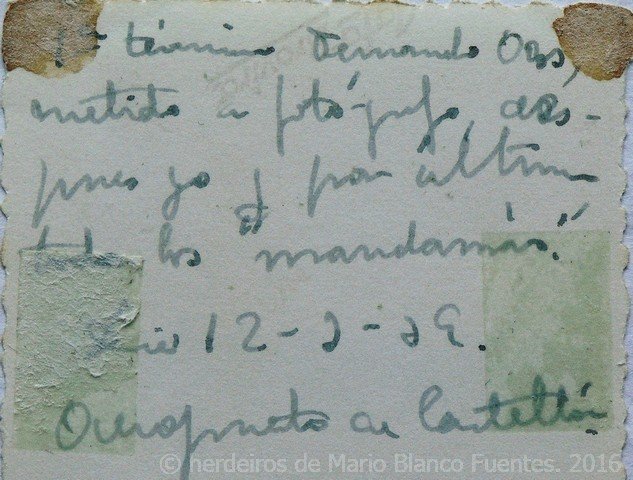 término Fernando
metido a fotógrafo, des-
pues yo y por ultimo
los "mandamás".
12-
Aeropuerto de Castellón
© herdeiros de Mario Blanco Fuentes. 2016